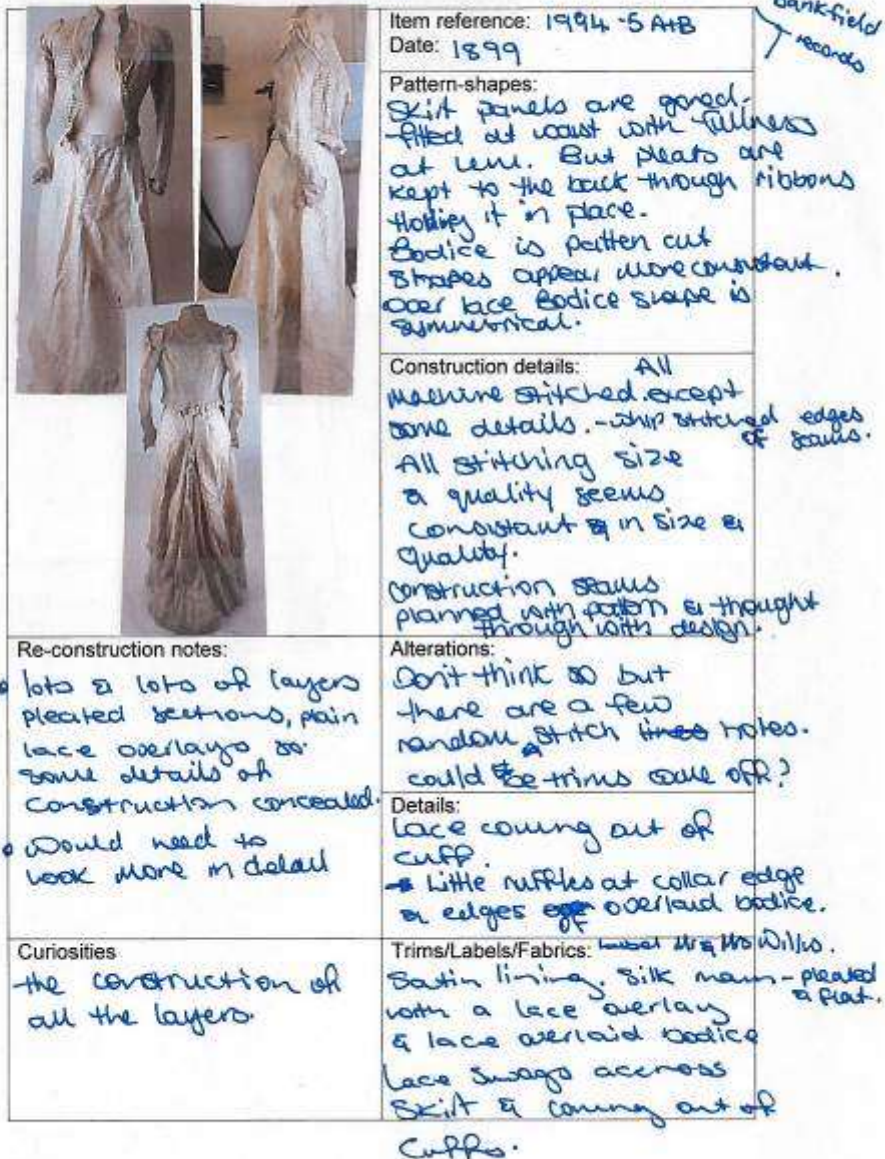 Item reference: 1994-5 A+B
Bankfield
records
Date: 1899
Pattern-shapes:
Skirt panels are gored.
fitted at waist with fullness
at hem. But pleats are
kept to the back through ribbons
Holding it in place.
Bodice is patten cut
Shapes appear more consistant.
over lace Bodice shape is
symmetrical.
Construction details: All
machine stitched except
some details. - whip stitched edges
of seams.
All stitching size
& quality seems
consistant & in size &
quality.
construction seams
planned with pattern & thought
through with design.
Re-construction notes:
• lots & lots of layers
pleated sections, plain
lace overlays so
some details of
construction concealed.
• Would need to
look more in detail
Alterations:
Don't think so but
there are a few
random stitch lines holes.
could be trims come off?
Details:
Lace coming out of
cuff.
Little ruffles at collar edge
& edges of overlaid bodice.
Curiosities
the construction of
all the layers.
Trims/Labels/Fabrics: Label Mr & Mrs Willis.
Satin lining. Silk main - pleated
& flat.
with a lace overlay
& lace overlaid bodice
Lace swags accross
Skirt & coming out of
Cuffs.